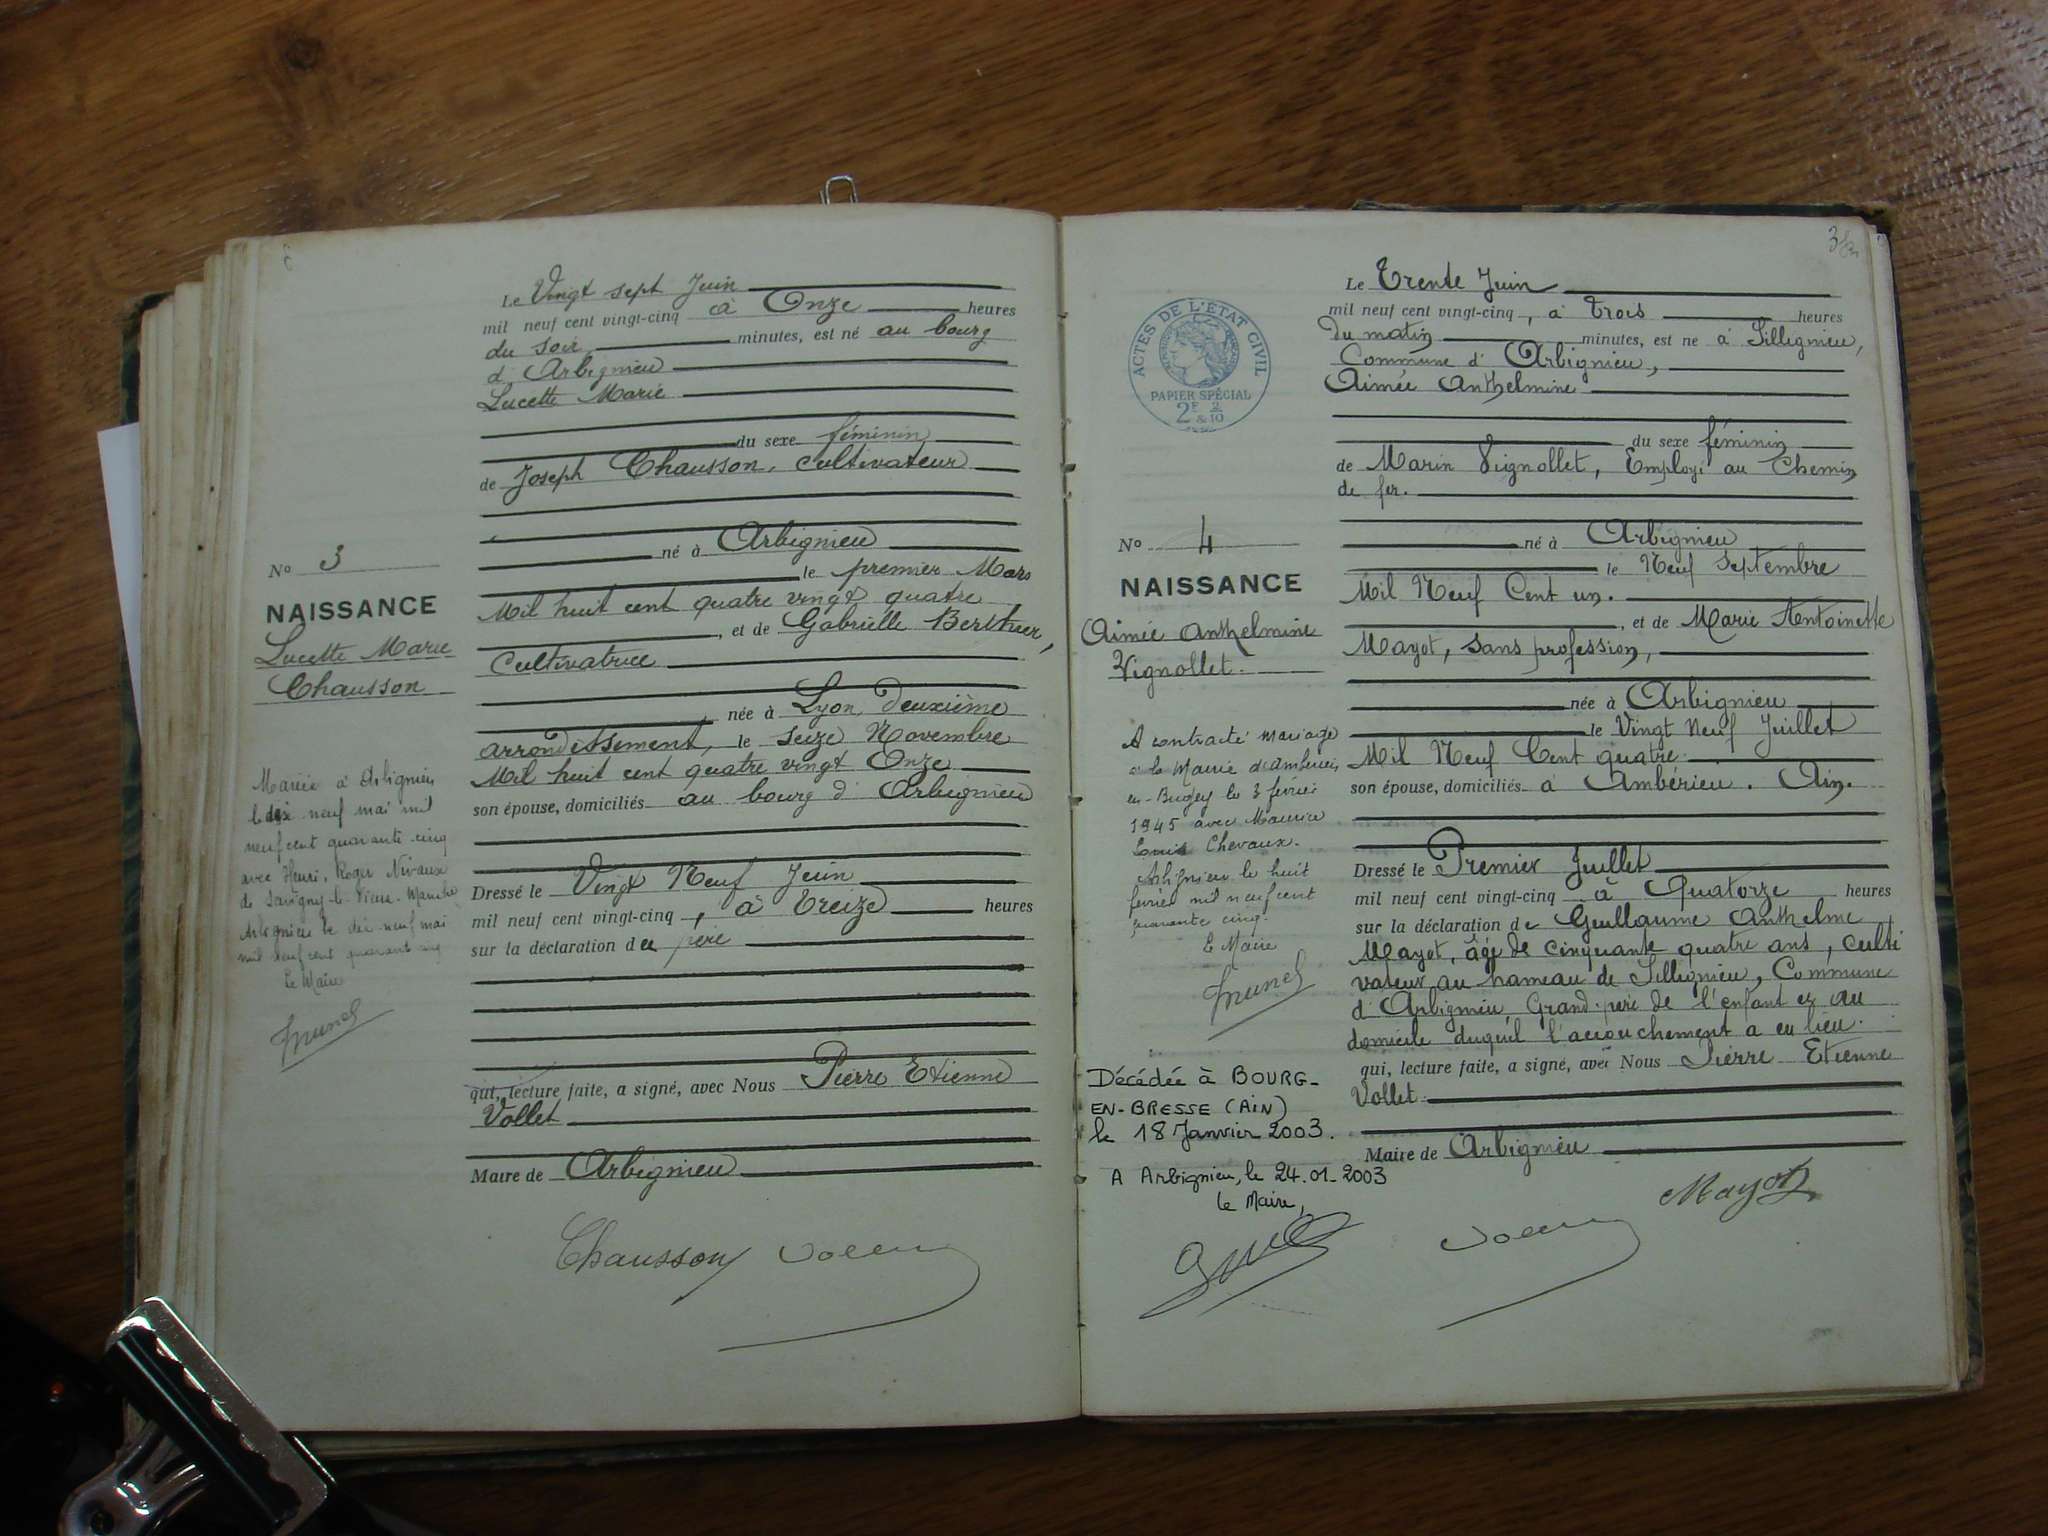 Le Vingt sept Juin
mil neuf cent vingt-cinq à Onze heures
du soir minutes, est né au bourg
d'Arbignieu
Lucette Marie
du sexe féminin
de Joseph Chausson, cultivateur
né à Arbignieu
le premier Mars
Mil huit cent quatre vingt quatre
, et de Gabrielle Berthier,
Cultivatrice
née à Lyon, deuxième
arrondissement, le seize Novembre
Mil huit cent quatre vingt Onze
son épouse, domiciliés au bourg d'Arbignieu
Dressé le Vingt Neuf Juin
mil neuf cent vingt-cinq, à Treize heures
sur la déclaration du père
qui, lecture faite, a signé, avec Nous Pierre Etienne
Vollet
Maire de Arbignieu
Chausson
No 3
NAISSANCE
Lucette Marie
Chausson
Mariée à Arbignieu
le dix neuf mai mil
neuf cent quarante cinq
avec Henri, Roger Nivaux
de Savigny-le-Vieux. Manche
Arbignieu le dix neuf mai
mil neuf cent quarante cinq
Le Maire
3 bis
ACTES DE L'ÉTAT CIVIL
PAPIER SPÉCIAL
2F 2
& 10
Le Trente Juin
mil neuf cent vingt-cinq, à Trois heures
Du matin minutes, est né à Sillignieu,
Commune d'Arbignieu,
Aimée Anthelmine
du sexe féminin
de Marin Vignollet, Employé au Chemin
de fer.
né à Arbignieu
le Neuf Septembre
Mil Neuf Cent un.
, et de Marie Antoinette
Mayot, sans profession,
née à Arbignieu
le Vingt Neuf Juillet
Mil Neuf Cent quatre
son épouse, domiciliés à Ambérieu. Ain.
Dressé le Premier Juillet
mil neuf cent vingt-cinq à Quatorze heures
sur la déclaration de Guillaume Anthelme
Mayot, âgé de cinquante quatre ans, culti
vateur au hameau de Sillignieu, Commune
d'Arbignieu, Grand-père de l'enfant et au
domicile duquel l'accouchement a eu lieu.
qui, lecture faite, a signé, avec Nous Pierre Etienne
Vollet
Maire de Arbignieu
Mayot
No 4
NAISSANCE
Aimée Anthelmine
Vignollet
A contracté mariage
à la Mairie d'Ambérieu
en-Bugey le 3 février
1945 avec Maurice
Louis Chevaux.
Arbignieu le huit
février mil neuf cent
quarante cinq.
Le Maire
Décédée à BOURG-
EN-BRESSE (AIN)
le 18 Janvier 2003.
A Arbignieu, le 24.01.2003
le Maire,